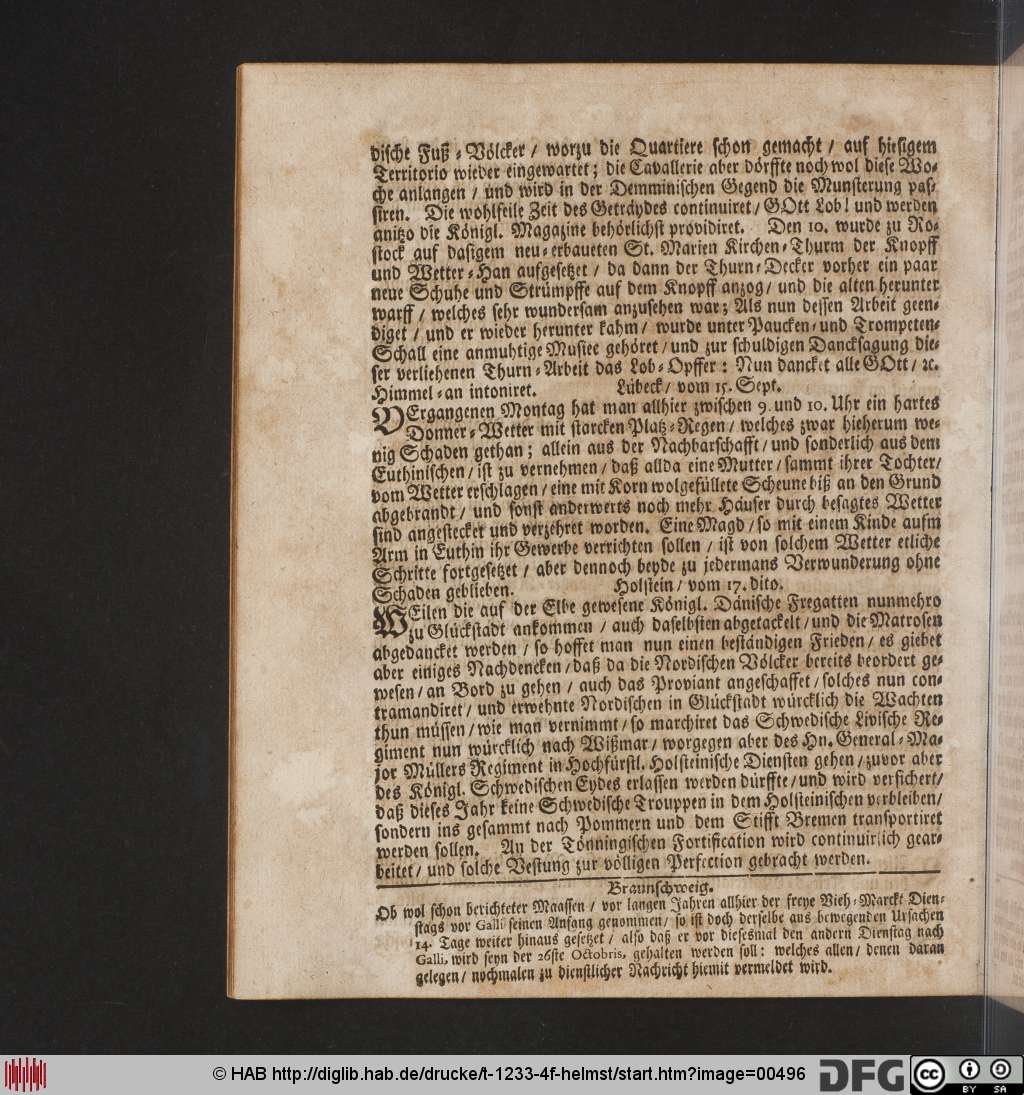 dische Fuß-Völcker / worzu die Quartiere schon gemacht / auf hiesigem
Territorio wieder eingewartet; die Cavallerie aber dörffte noch wol diese Wo-
che anlangen / und wird in der Demminischen Gegend die Munsterung pas-
siren. Die wohlfeile Zeit des Geträydes continuiret / GOtt Lob! und werden
anitzo die Königl. Magazine behörlichst providiret. Den 10. wurde zu Ro-
stock auf dasigem neu-erbaueten St. Marien Kirchen-Thurm der Knopff
und Wetter-Han aufgesetzet / da dann der Thurn-Decker vorher ein paar
neue Schuhe und Strümpffe auf dem Knopff anzog / und die alten herunter
warff / welches sehr wundersam anzusehen war; Als nun dessen Arbeit geen-
diget / und er wieder herunter kahm / wurde unter Paucken- und Trompeten-
Schall eine anmuhtige Musiee gehöret / und zur schuldigen Dancksagung die-
ser verliehenen Thurn-Arbeit das Lob-Opffer: Nun dancket alle GOtt / ꝛc.
Himmel-an intoniret. Lübeck / vom 15. Sept.
VErgangenen Montag hat man allhier zwischen 9. und 10. Uhr ein hartes
Donner-Wetter mit starcken Platz-Regen / welches zwar hieherum we-
nig Schaden gethan; allein aus der Nachbarschafft / und sonderlich aus dem
Euthinischen / ist zu vernehmen / daß allda eine Mutter / sammt ihrer Tochter /
vom Wetter erschlagen / eine mit Korn wolgefüllete Scheune biß an den Grund
abgebrandt / und sonst anderwerts noch mehr Häuser durch besagtes Wetter
sind angestecket und verzehret worden. Eine Magd / so mit einem Kinde aufm
Arm in Euthin ihr Gewerbe verrichten sollen / ist von solchem Wetter etliche
Schritte fortgesetzet / aber dennoch beyde zu jedermans Verwunderung ohne
Schaden geblieben. Holstein / vom 17. dito.
WEilen die auf der Elbe gewesene Königl. Dänische Fregatten nunmehro
zu Glückstadt ankommen / auch daselbsten abgetackelt / und die Matrosen
abgedancket werden / so hoffet man nun einen beständigen Frieden / es giebet
aber einiges Nachdencken / daß da die Nordischen Völcker bereits beordert ge-
wesen / an Bord zu gehen / auch das Proviant angeschaffet / solches nun con-
tramandiret / und erwehnte Nordischen in Glückstadt würcklich die Wachten
thun müssen / wie man vernimmt / so marchiret das Schwedische Livische Re-
giment nun würcklich nach Wißmar / worgegen aber des Hn. General-Ma-
jor Müllers Regiment in Hochfürstl. Holsteinische Diensten gehen / zuvor aber
des Königl. Schwedischen Eydes erlassen werden dürffte / und wird versichert /
daß dieses Jahr keine Schwedische Trouppen in dem Holsteinischen verbleiben /
sondern ins gesammt nach Pommern und dem Stifft Bremen transportiret
werden sollen. An der Tönningischen Fortification wird continuirlich gear-
beitet / und solche Vestung zur völligen Perfection gebracht werden.
Braunschweig.
Ob wol schon berichteter Maassen / vor langen Jahren allhier der freye Vieh-Marckt Dien-
stags vor Galli seinen Anfang genommen / so ist doch derselbe aus bewegenden Ursachen
14. Tage weiter hinaus gesetzet / also daß er vor diesesmal den andern Dienstag nach
Galli, wird seyn der 26ste Octobris, gehalten werden soll: welches allen / denen daran
gelegen / nochmalen zu dienstlicher Nachricht hiemit vermeldet wird.
© HAB http://diglib.hab.de/drucke/t-1233-4f-helmst/start.htm?image=00496
DFG
cc
BY SA